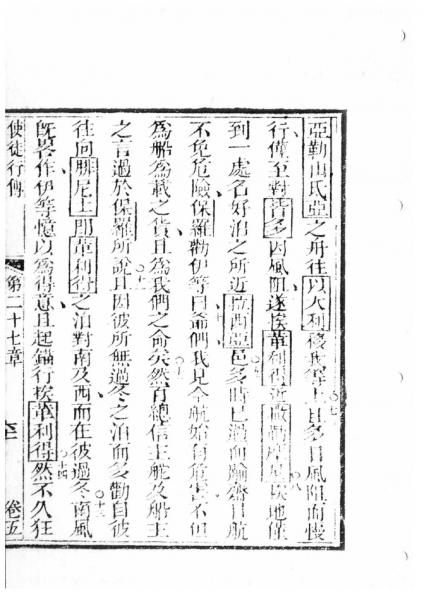 亞勒山氏亞之舟往以大利移我等上且多日風阻而慢
行僅至對多因風阻遂挨革利得近撒勒摩尼挨地僅
到一處名好泊之所近拉西亞邑多時已過而踰齋日航
不免危險保羅勸伊等曰爺們我見今航始有危害不但
為船為載之貨且為我們之命矣然百總信主舵及船主
之言過於保羅所說且因彼所無過冬之泊而多勸自彼
往向腓尼士即革利得之泊對南及西而在彼過冬南風
既畧作伊等憶以為得意且起錨行挨革利得然不久狂
使徒行傳 第二十七章 卷五